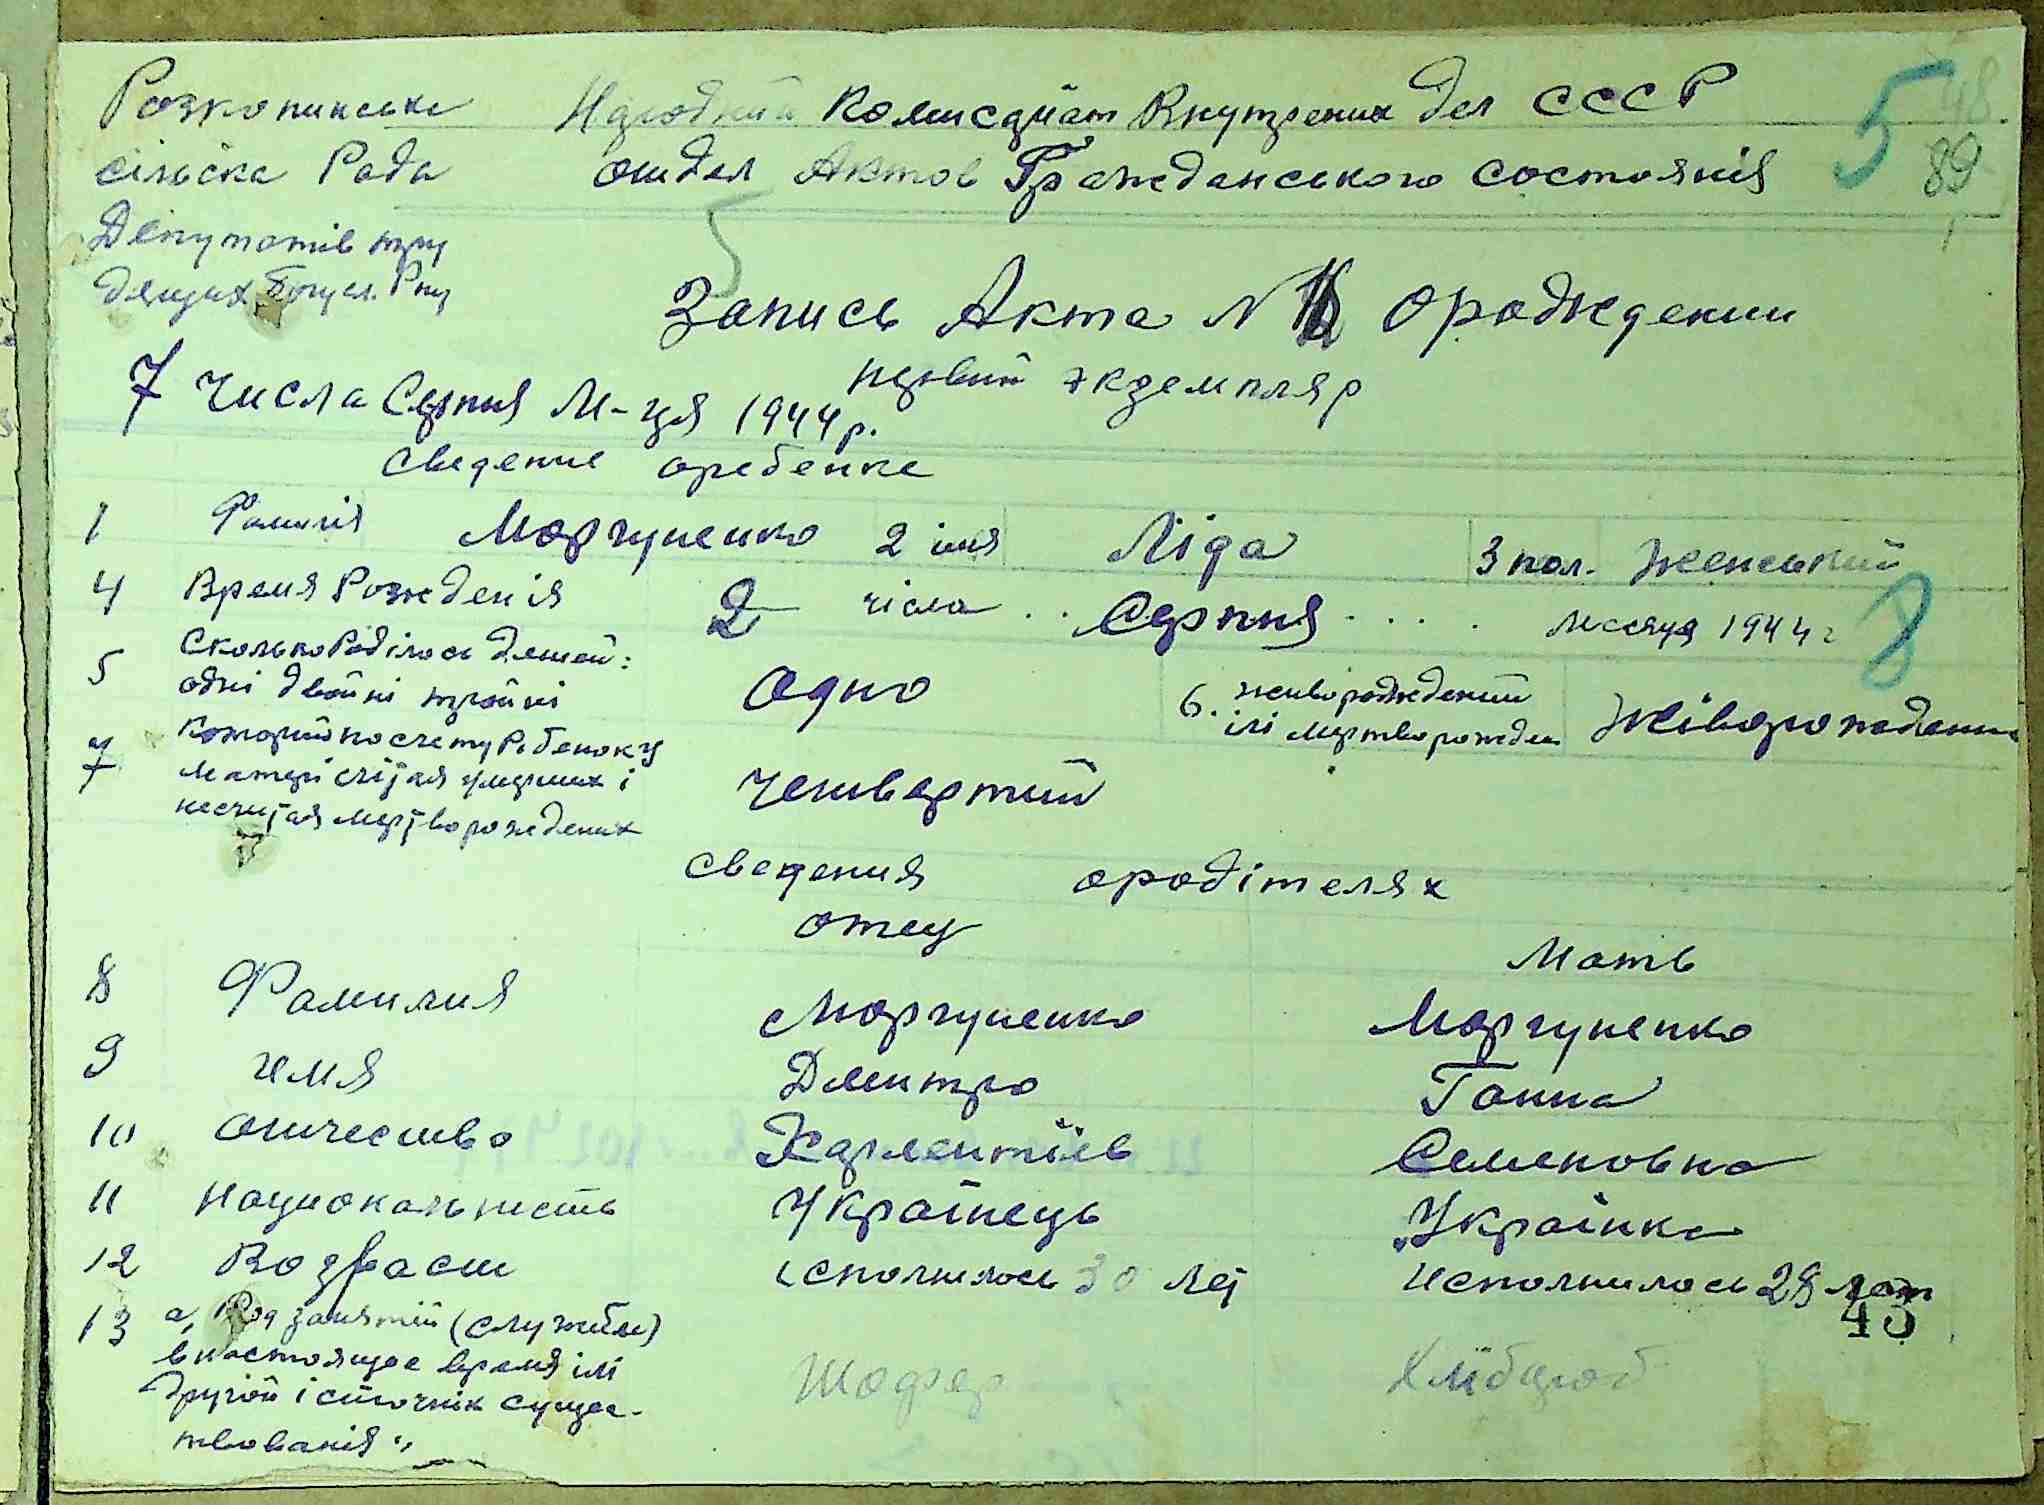 Розкопинська Народний Комисаріат Внутрених Дел СССР 5 48
сільска Рада отдел Актов Гражданського состоянія 89
Депутатів тру
дящих
Запись Акта № о рождении
первий экземпляр
7 числа Серпня М-ця 1944 р.
Сведение о ребенке
1 Фамилія Моргуненко 2 імя Ліда 3 пол. Женський
4 Время Рожденія 2 числа .. Серпня .... Месяця 1944 г 8
5 Сколько Роділось Детей:
одні двойні тройні Одно 6. живорожденний
ілі мертворожден Жіворожденна
7 Которий по счету Ребенок у
Матері счітая умерших і
несчитая мертворождених Четвертий
Сведения о родітелях
отец Мать
8 Фамилия Моргуненко Моргуненко
9 Имя Дмитро Ганна
10 Отчество Семеновна
11 Национальность Українець Українка
12 Возраст Исполнилось 30 лет Исполнилось 28 лет
43
13 а, Род занятій (служби)
в настоящее время ілі
другой істочнік сущес-
твованія" Шофер Хлібороб